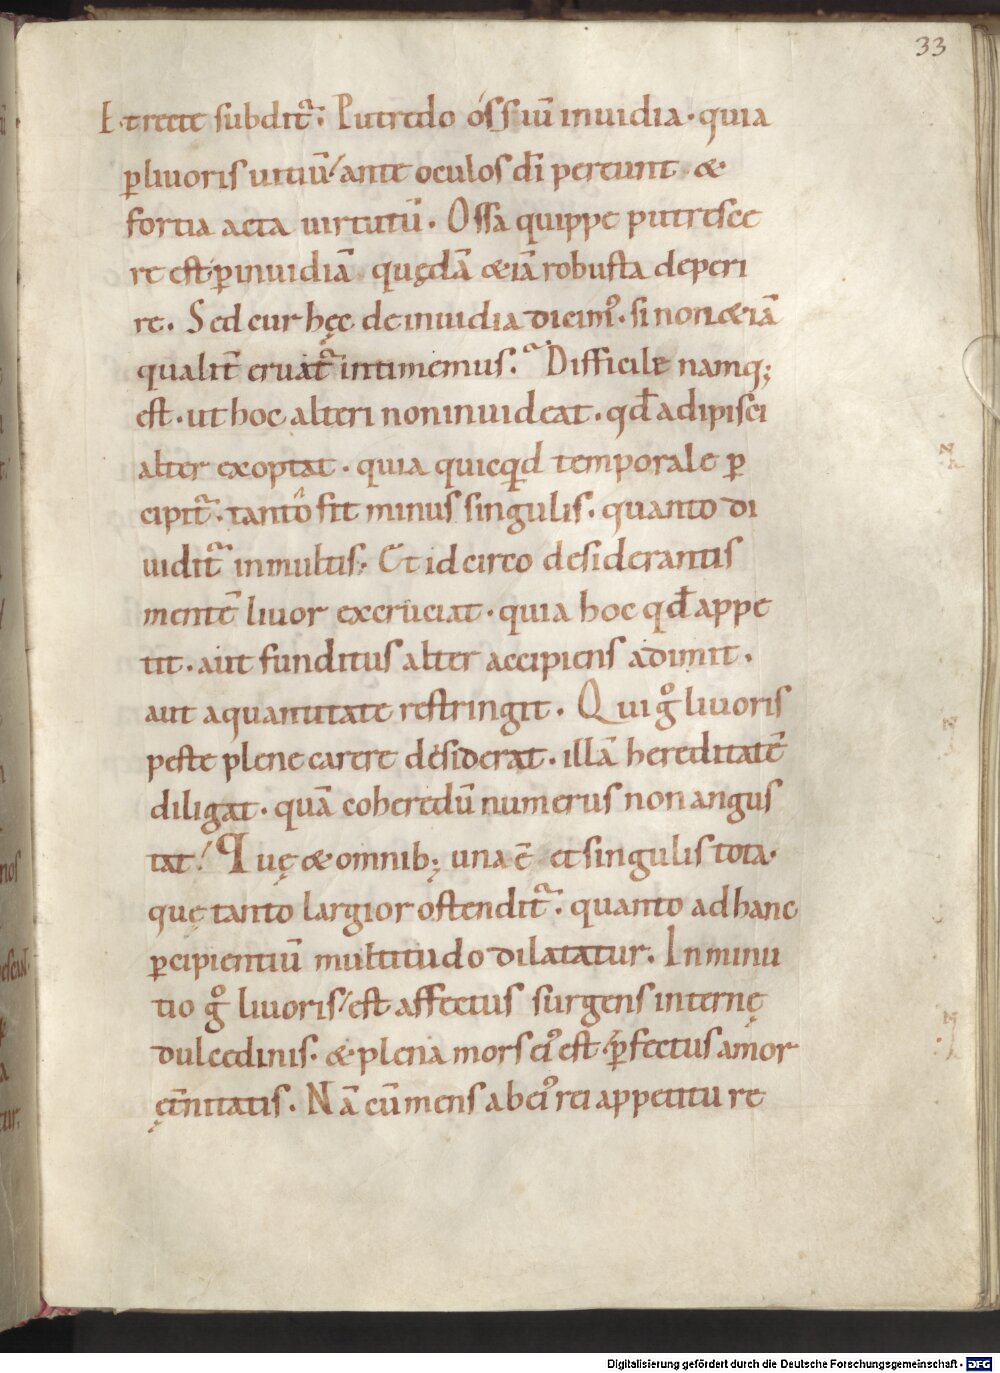 33
Et recte subdit᷑. Putredo ossiū inuidia. quia
ꝑ liuoris uitiū ante oculos dī pereunt &
fortia acta uirtutū. Ossa quippe putresce
re est ꝑ inuidiā. quędā &iā robusta deperi
re. Sed cur hęc de inuidia dicimꝰ. si non &iā
qualit̄ eruat᷑ intimemus. Difficile namq;
est. ut hoc alteri non inuideat. qđ adipisci
alter exoptat. quia quicqͥd temporale ꝑ
cipit᷑. tanto fit minus singulis. quanto di
uidit᷑ in multis. Et idcirco desiderantis
mentē liuor excruciat. quia hoc qđ appe
tit. aut funditus alter accipiens adimit.
aut a quantitate restringit. Qui gͦ liuoris
peste plene carere desiderat. illā hereditatē
diligat. quā coheredū numerus non angus
tat. Quę & omnib; una ē et singulis tota.
quę tanto largior ostendit᷑. quanto ad hanc
ꝑcipientiū multitudo dilatatur. Inminu
tio gͦ liuoris est affectus surgens internę
dulcedinis. & plena mors eiꝰ est ꝑfectus amor
ęt̄nitatis. Nā cū mens ab eiꝰ rei appetitu re
Digitalisierung gefördert durch die Deutsche Forschungsgemeinschaft - DFG